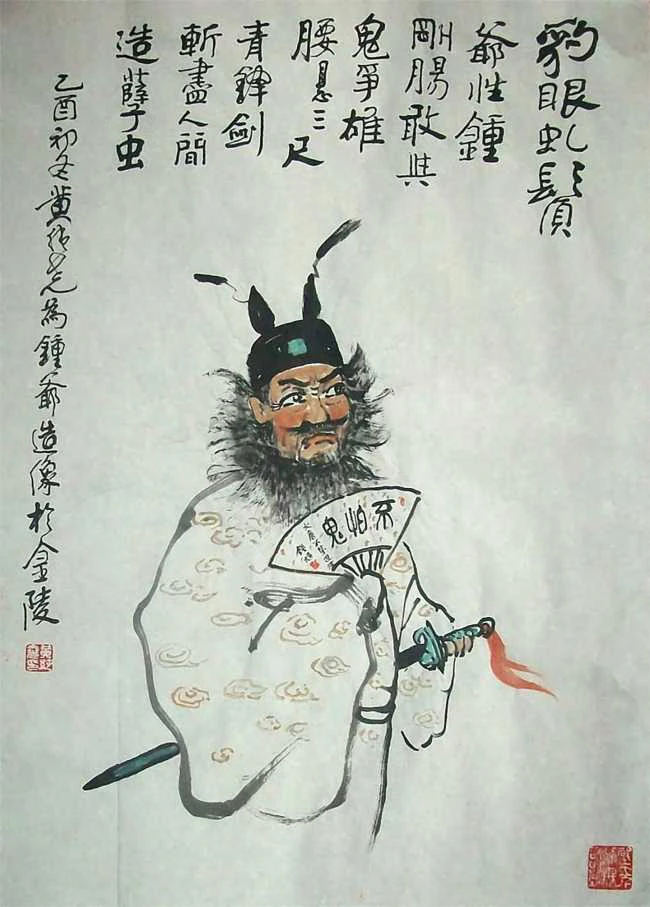 豹眼虬髯須
爺性鍾
剛腸敢與
鬼爭雄
腰悬三尺
青鋒劍
斬盡人間
造孽虫
乙酉初冬黄 为鍾爺造像於金陵
不怕鬼